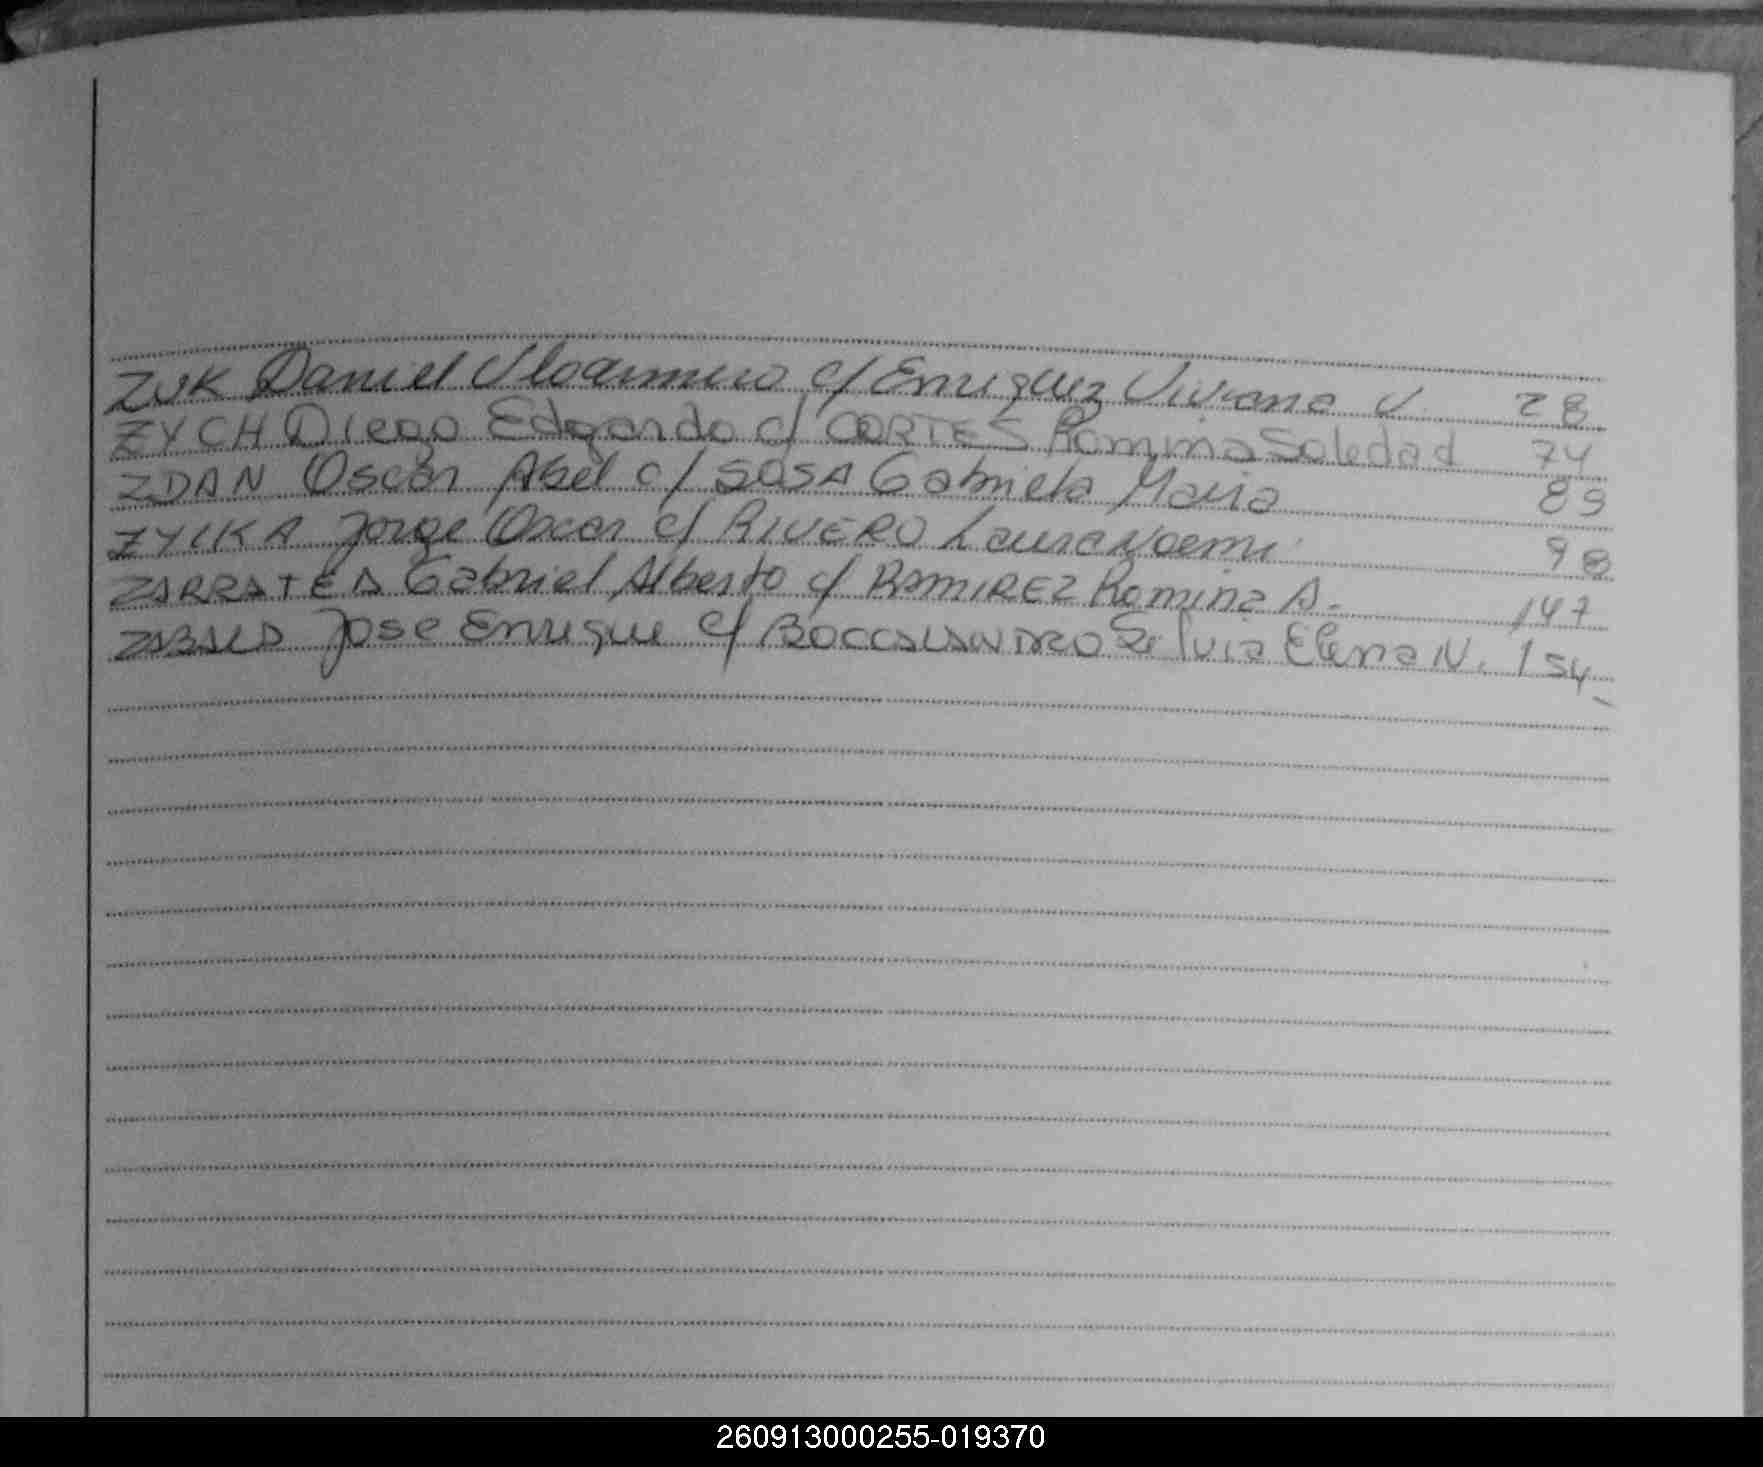 ZUK Daniel Vloadimiro c/ Enriquez Viviana V. 28
ZYCH Diego Edgardo c/ CORTES Romina Soledad 74
ZDAN Oscar Abel c/ SOSA Gabriela Maria 89
ZYLKA Jorge Oscar c/ RIVERO Laura Noemi 98
ZARRATEA Gabriel Alberto c/ RAMIREZ Romina A. 147
ZABALA Jose Enrique c/ BOCCALANDRO Silvia Elena N. 154
260913000255-019370